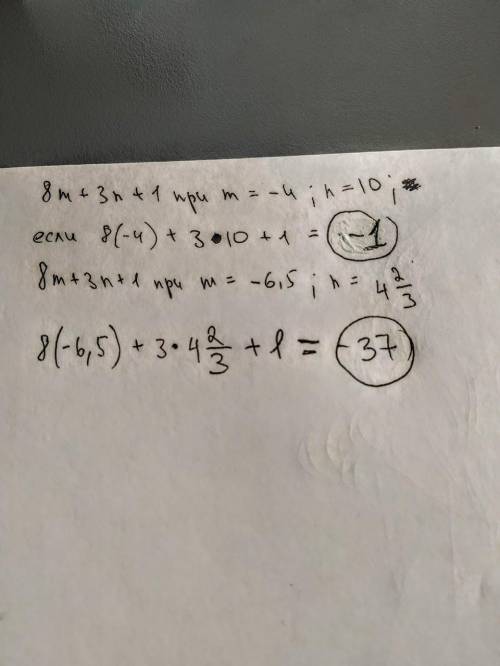 8m + 3n + 1 при m = -4 ; n = 10 ;
если 8(-4) + 3•10 + 1 = -1
8m + 3n + 1 при m = -6,5 ; n = 4 2/3
8(-6,5) + 3•4 2/3 + 1 = -37